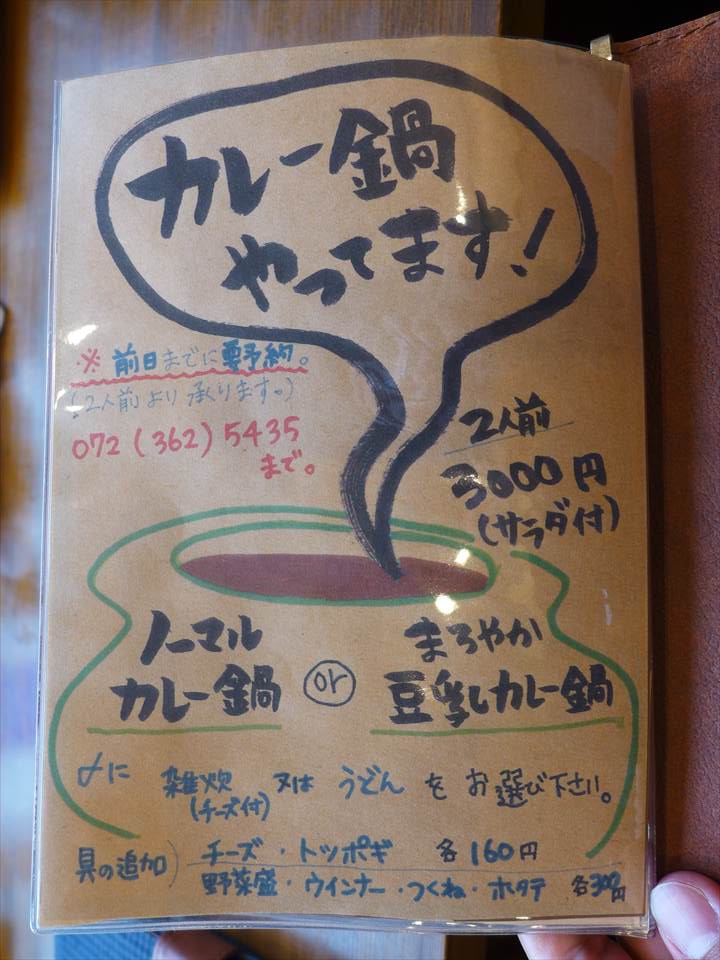 カレー鍋
やってます!
※前日までに要予約。
(2人前より承ります。)
072(362)5435
まで。
2人前
3000円
(サラダ付)
ノーマル
カレー鍋
or
まろやか
豆乳カレー鍋
〆に 雑炊 又は うどん を お選び下さい。
(チーズ付)
具の追加) チーズ・トッポギ 各160円
野菜盛・ウインナー・つくね・ホタテ 各300円